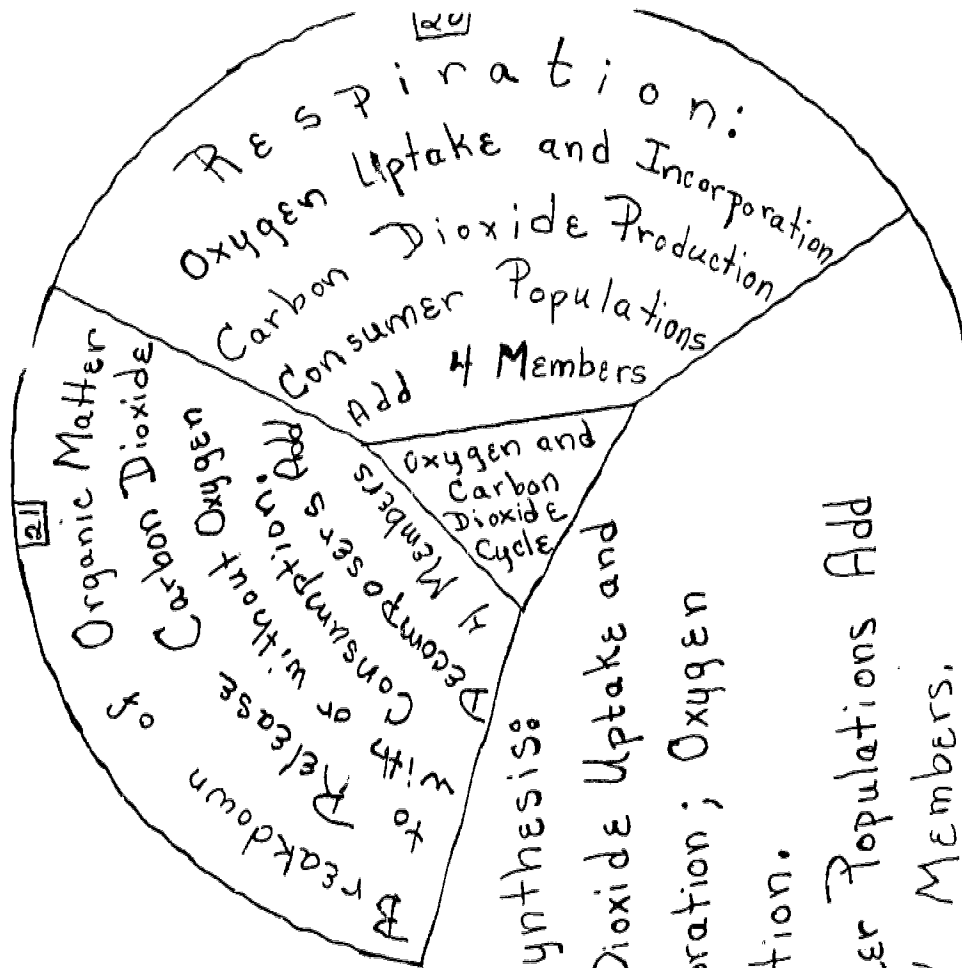 Respiration:
Oxygen Uptake and Incorporation
Carbon Dioxide Production
Consumer Populations
Add 4 Members
Oxygen and
Carbon
Dioxide
Cycle
21
Breakdown of Organic Matter
to Release Carbon Dioxide
with or without Oxygen
Consumption:
Decomposers Add
4 Members
ynthesis:
Dioxide Uptake and
ration; Oxygen
tion.
er Populations Add
Members.